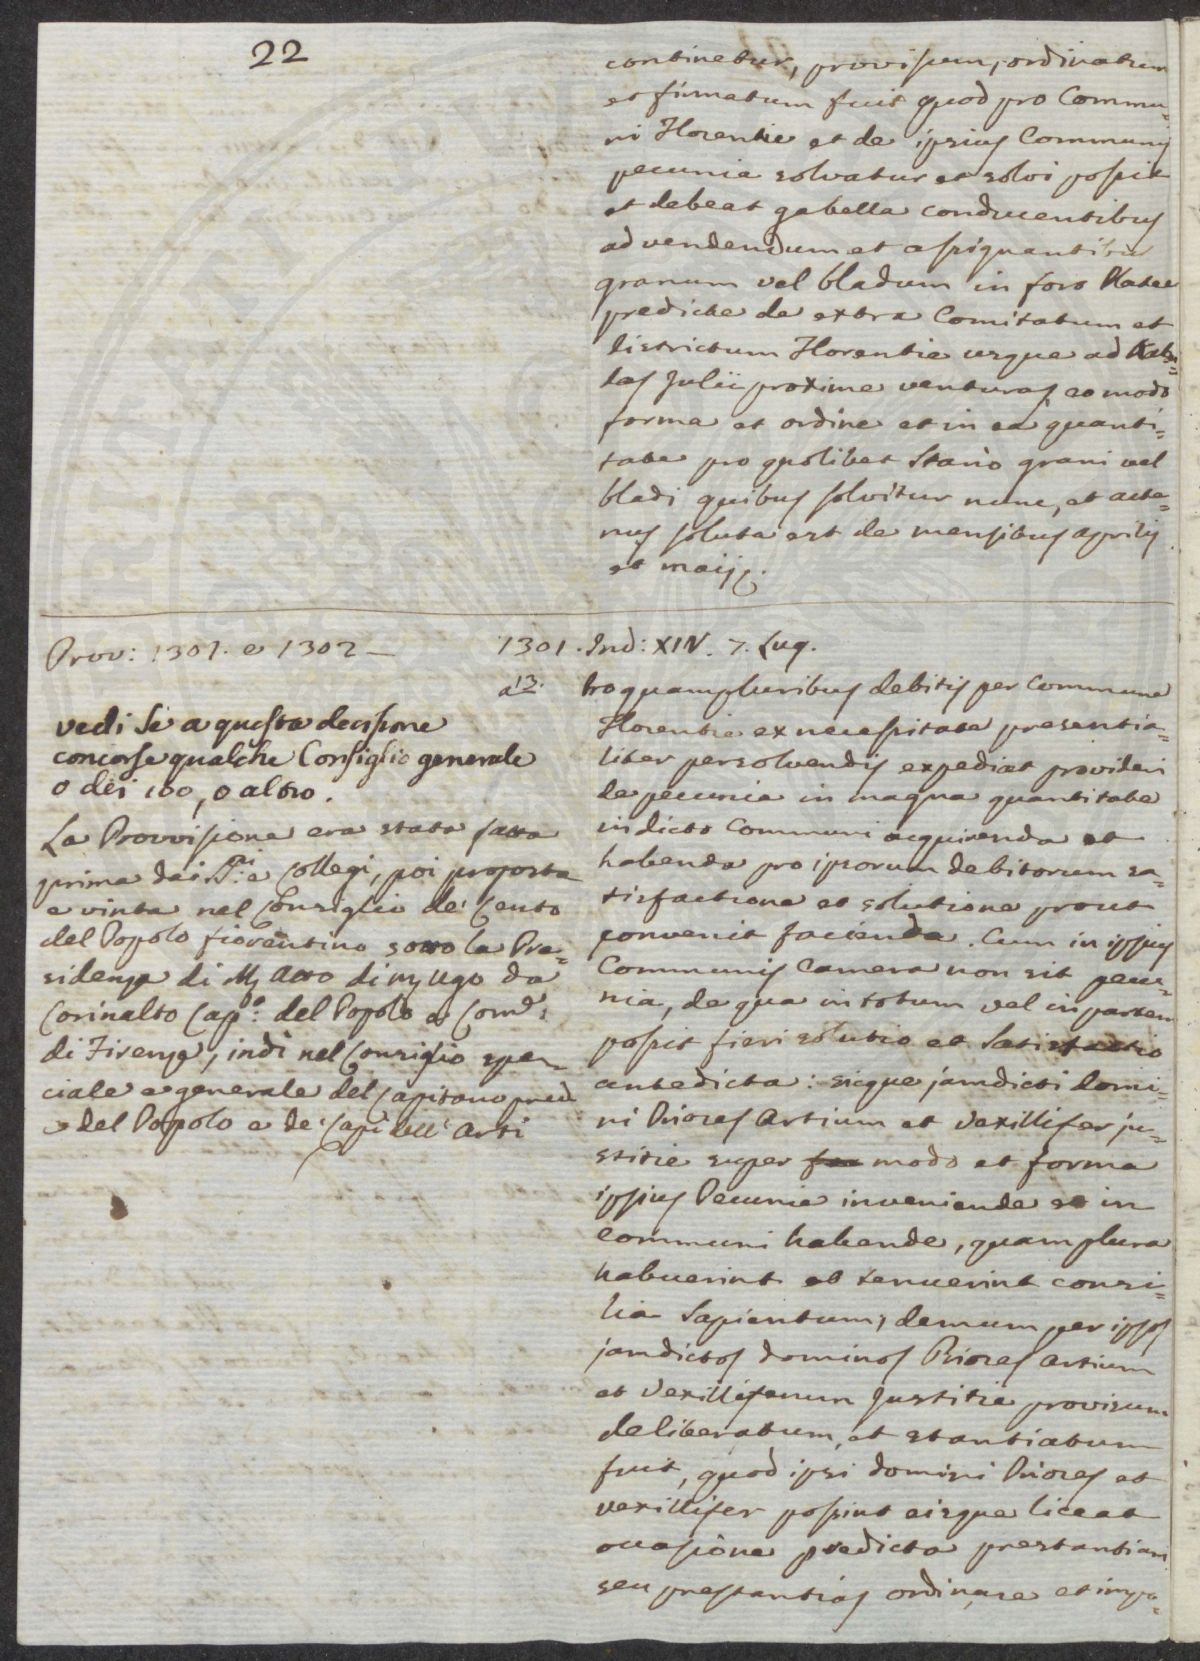 22
continetur, provisum, ordinatum
et firmatum fuit quod pro Commu=
ni Florentie et de ipsius Communis
pecunia solvatur et solvi possit
et debeat gabella conducentibus
ad vendendum et assignantibus
granum vel bladum in foro Platee
predicte de extra Comitatum et
districtum Florentie usque ad Kalen=
das Julii proxime venturas eo modo
forma et ordine et in ea quanti=
tate pro quolibet Stario grani vel
bladi quibus solvitur nunc, et acte=
nus soluta est de mensibus aprilis
et maij.
Prov: 1301. e 1302 —
1301. Ind: XIV. 7. Lug.
a 12.
vedi se a questa decisione
concorse qualche Consiglio generale
o dei 100, o altro.
La Provvisione era stata fatta
prima dai SS.ri e Collegi, poi proposta
e vinta nel Consiglio de' Cento
del Popolo fiorentino sotto la Pre=
sidenza di Mr Atto di mr Ugo da
Corinalto Cap.o del Popolo e Come:
di Firenze, indi nel Consiglio spe=
ciale e generale del Capitano pred
e del Popolo e de' Capi dell' Arti
Pro quampluribus debitis per Commune
Florentie ex necessitate presentia=
liter persolvendis expediat provideri
de pecunia in magna quantitate
in dicto Communi acquirenda et
habenda pro ipsorum debitorum sa=
tisfactione et solutione prout
convenit facienda. Cum in ipsius
Communis Camera non sit pecu=
nia, de qua in totum vel in partem
possit fieri solutio et Satisfactio
antedicta: sicque jamdicti Domi=
ni Priores Artium et Vexillifer ju=
stitie super modo et forma
ipsius Pecunie inveniende et in
Communi habende, quamplura
habuerint et tenuerint consi=
lia Sapientum, demum per ipsos
jamdictos dominos Priores Artium
et Vexilliferum Justitie provisum
deliberatum, et stantiatum
fuit, quod ipsi domini Priores et
vexillifer possint eisque liceat
occasione predicta prestantiam
seu prestantias ordinare et impo=